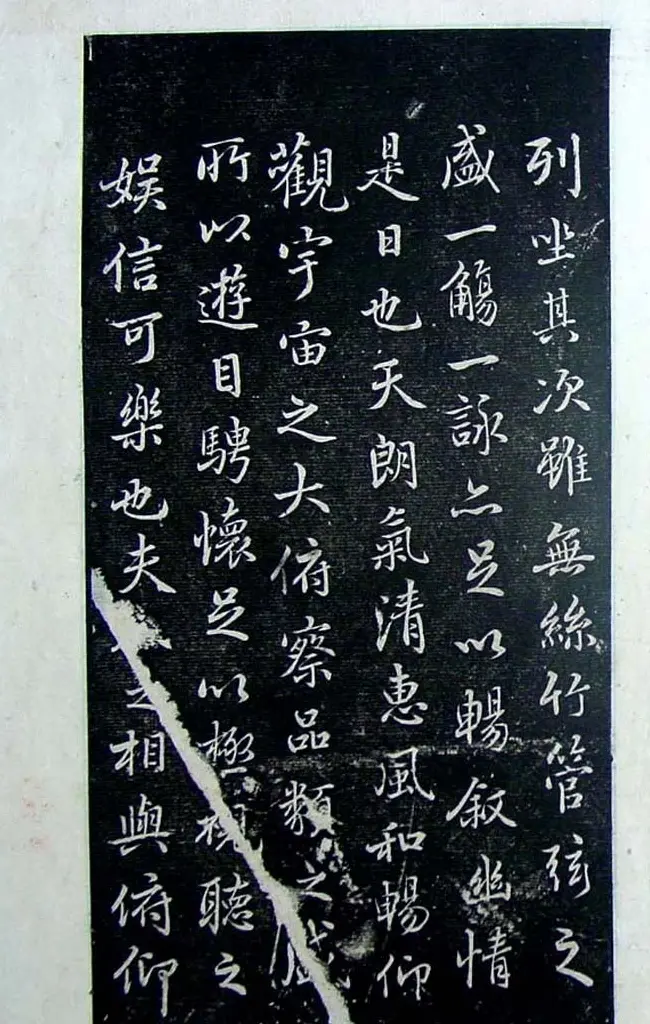 列坐其次雖無絲竹管弦之
盛一觴一詠亦足以暢敘幽情
是日也天朗氣清惠風和暢仰
觀宇宙之大俯察品類之盛
所以遊目騁懷足以極視聽之
娛信可樂也夫人之相與俯仰